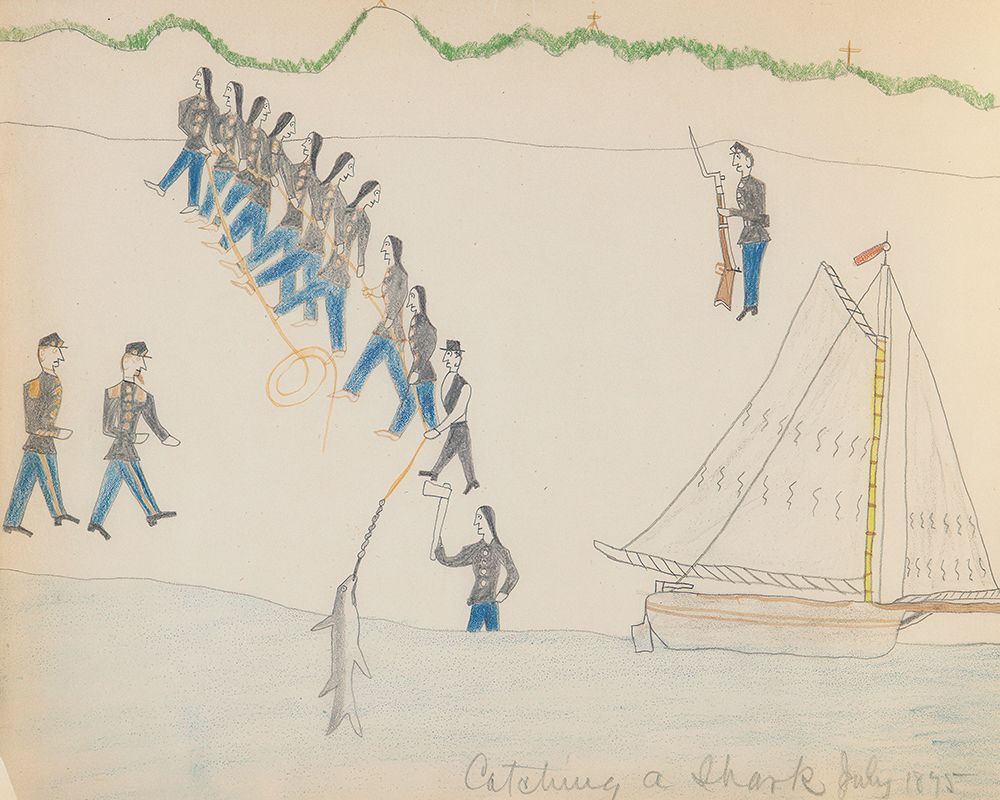 Catching a Shark July 1875